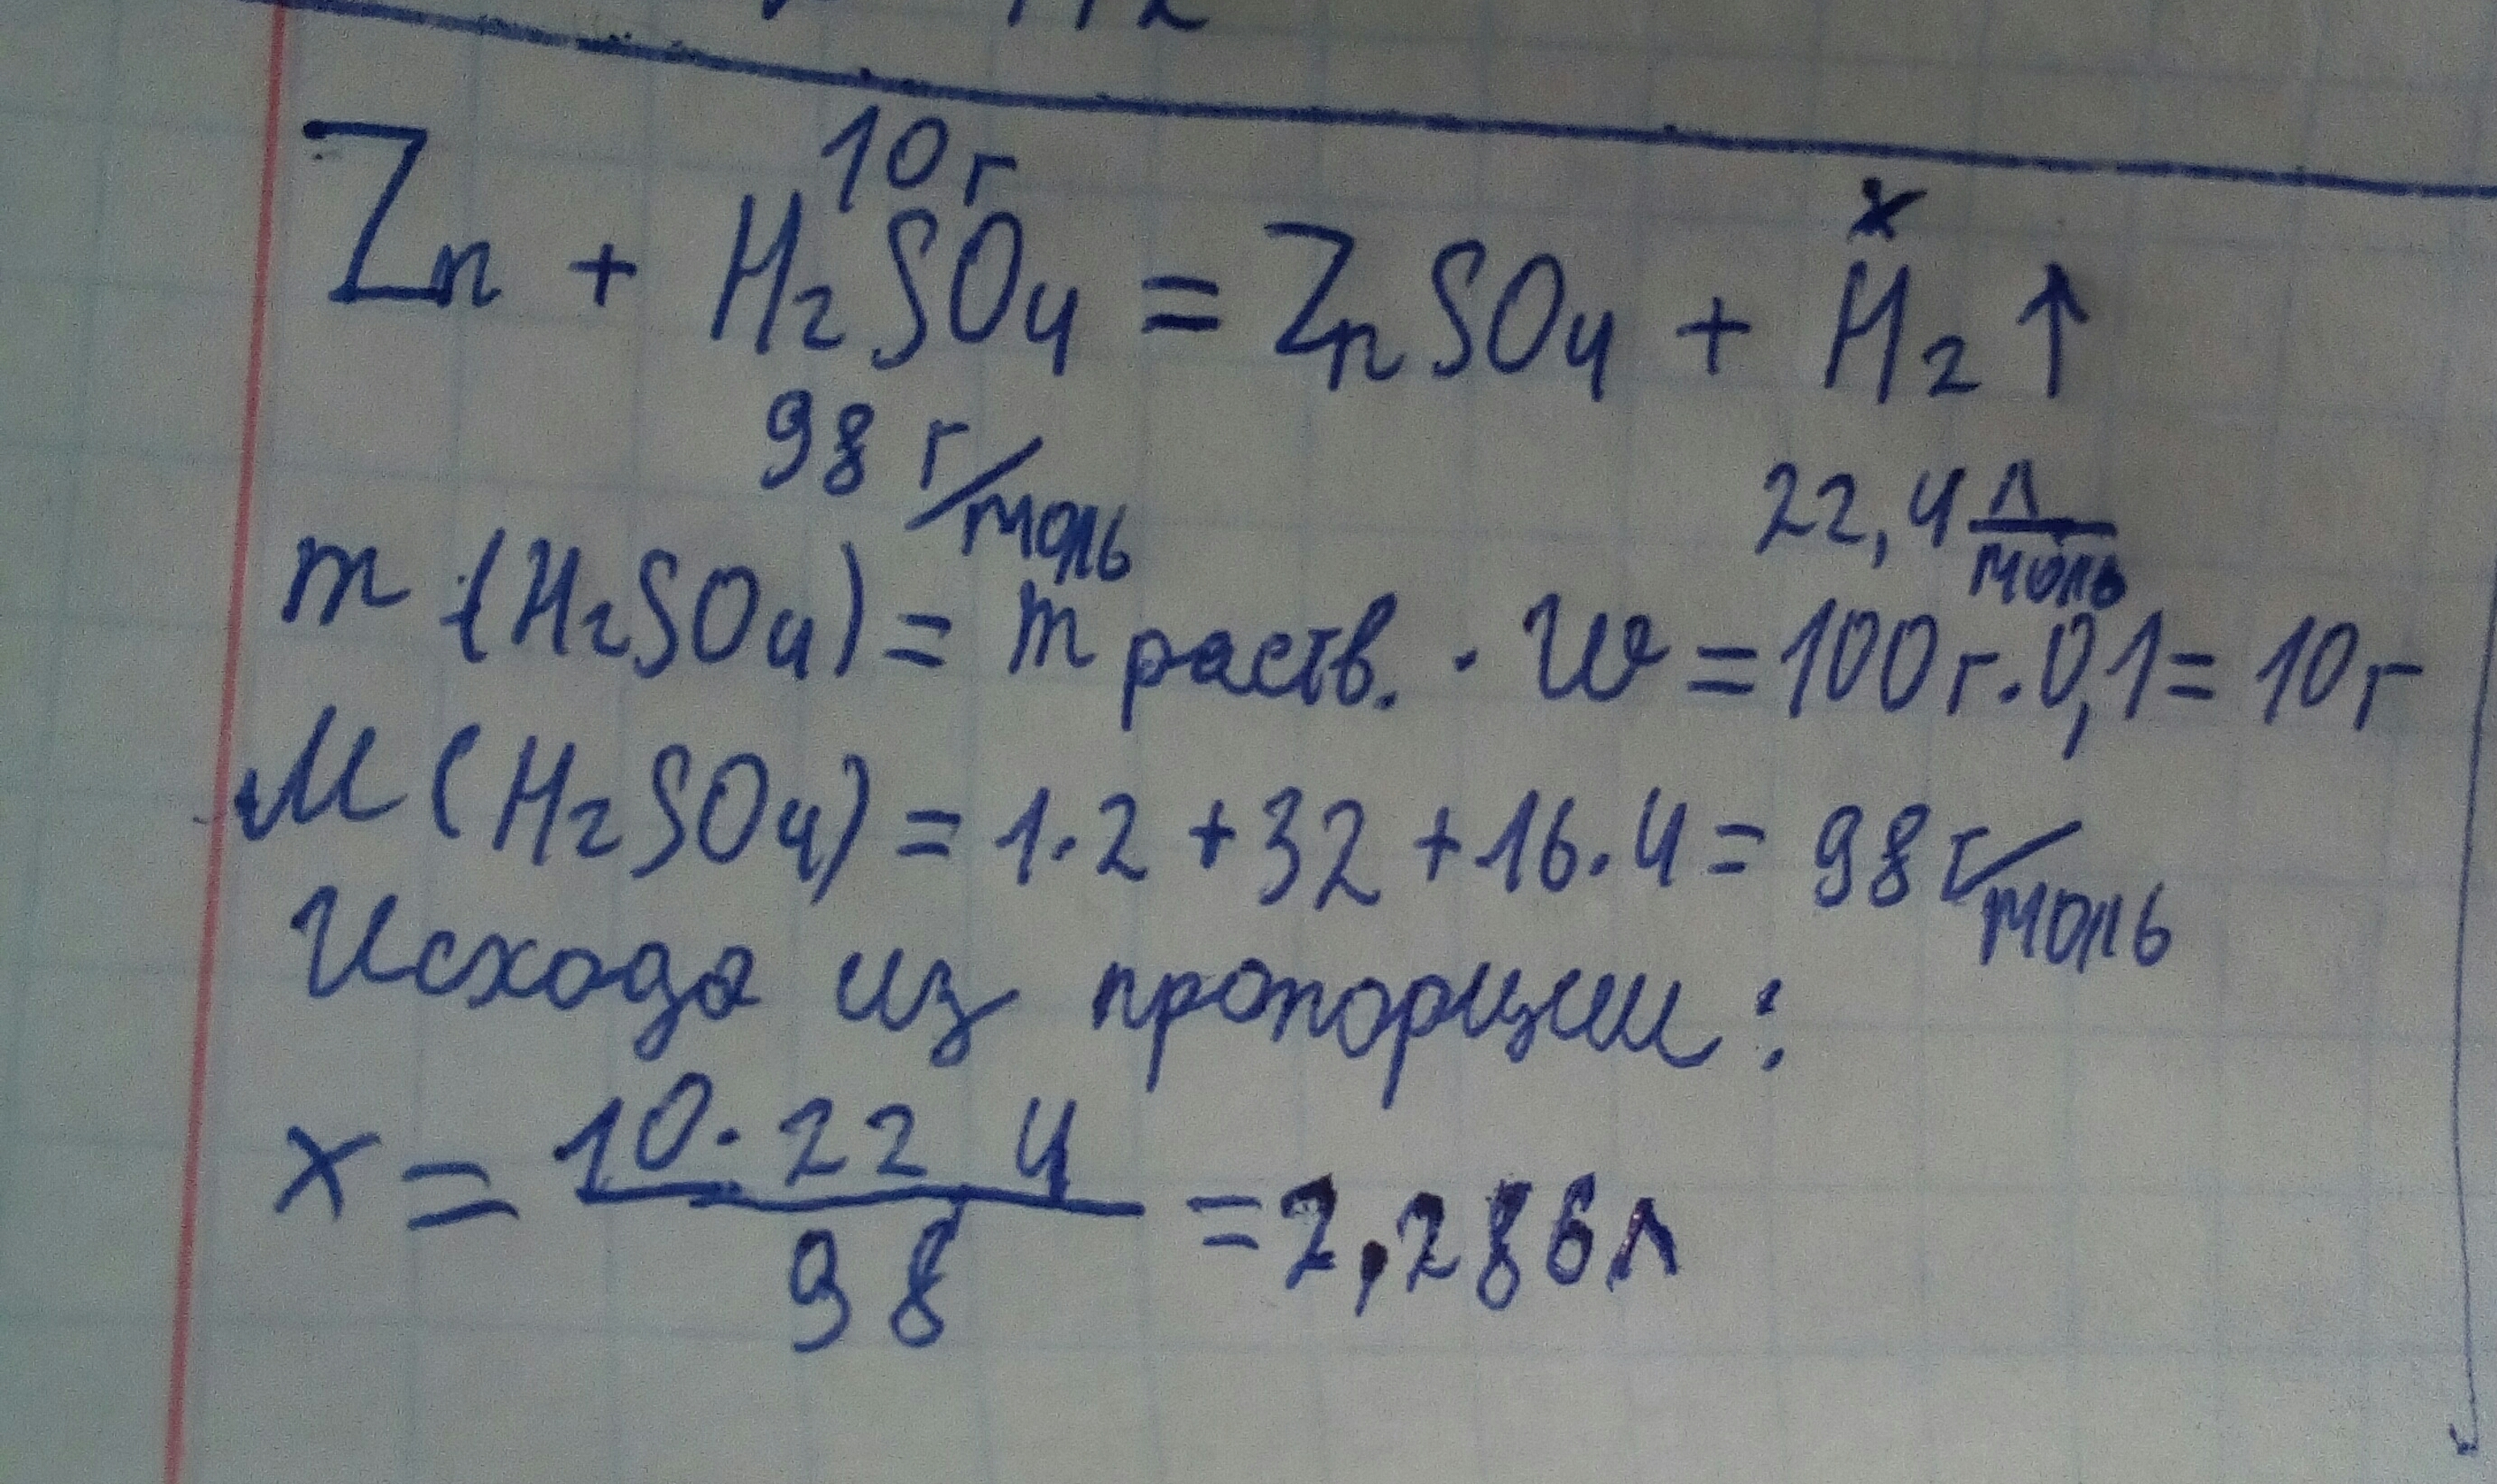 10 г x
Zn + H₂SO₄ = ZnSO₄ + H₂ ↑
98 г/моль 22,4 л/моль
m (H₂SO₄) = m раств. · w = 100 г · 0,1 = 10 г
M (H₂SO₄) = 1·2 + 32 + 16·4 = 98 г/моль
Исходя из пропорции:
x = 10·22 4 / 98 = 2,286 л